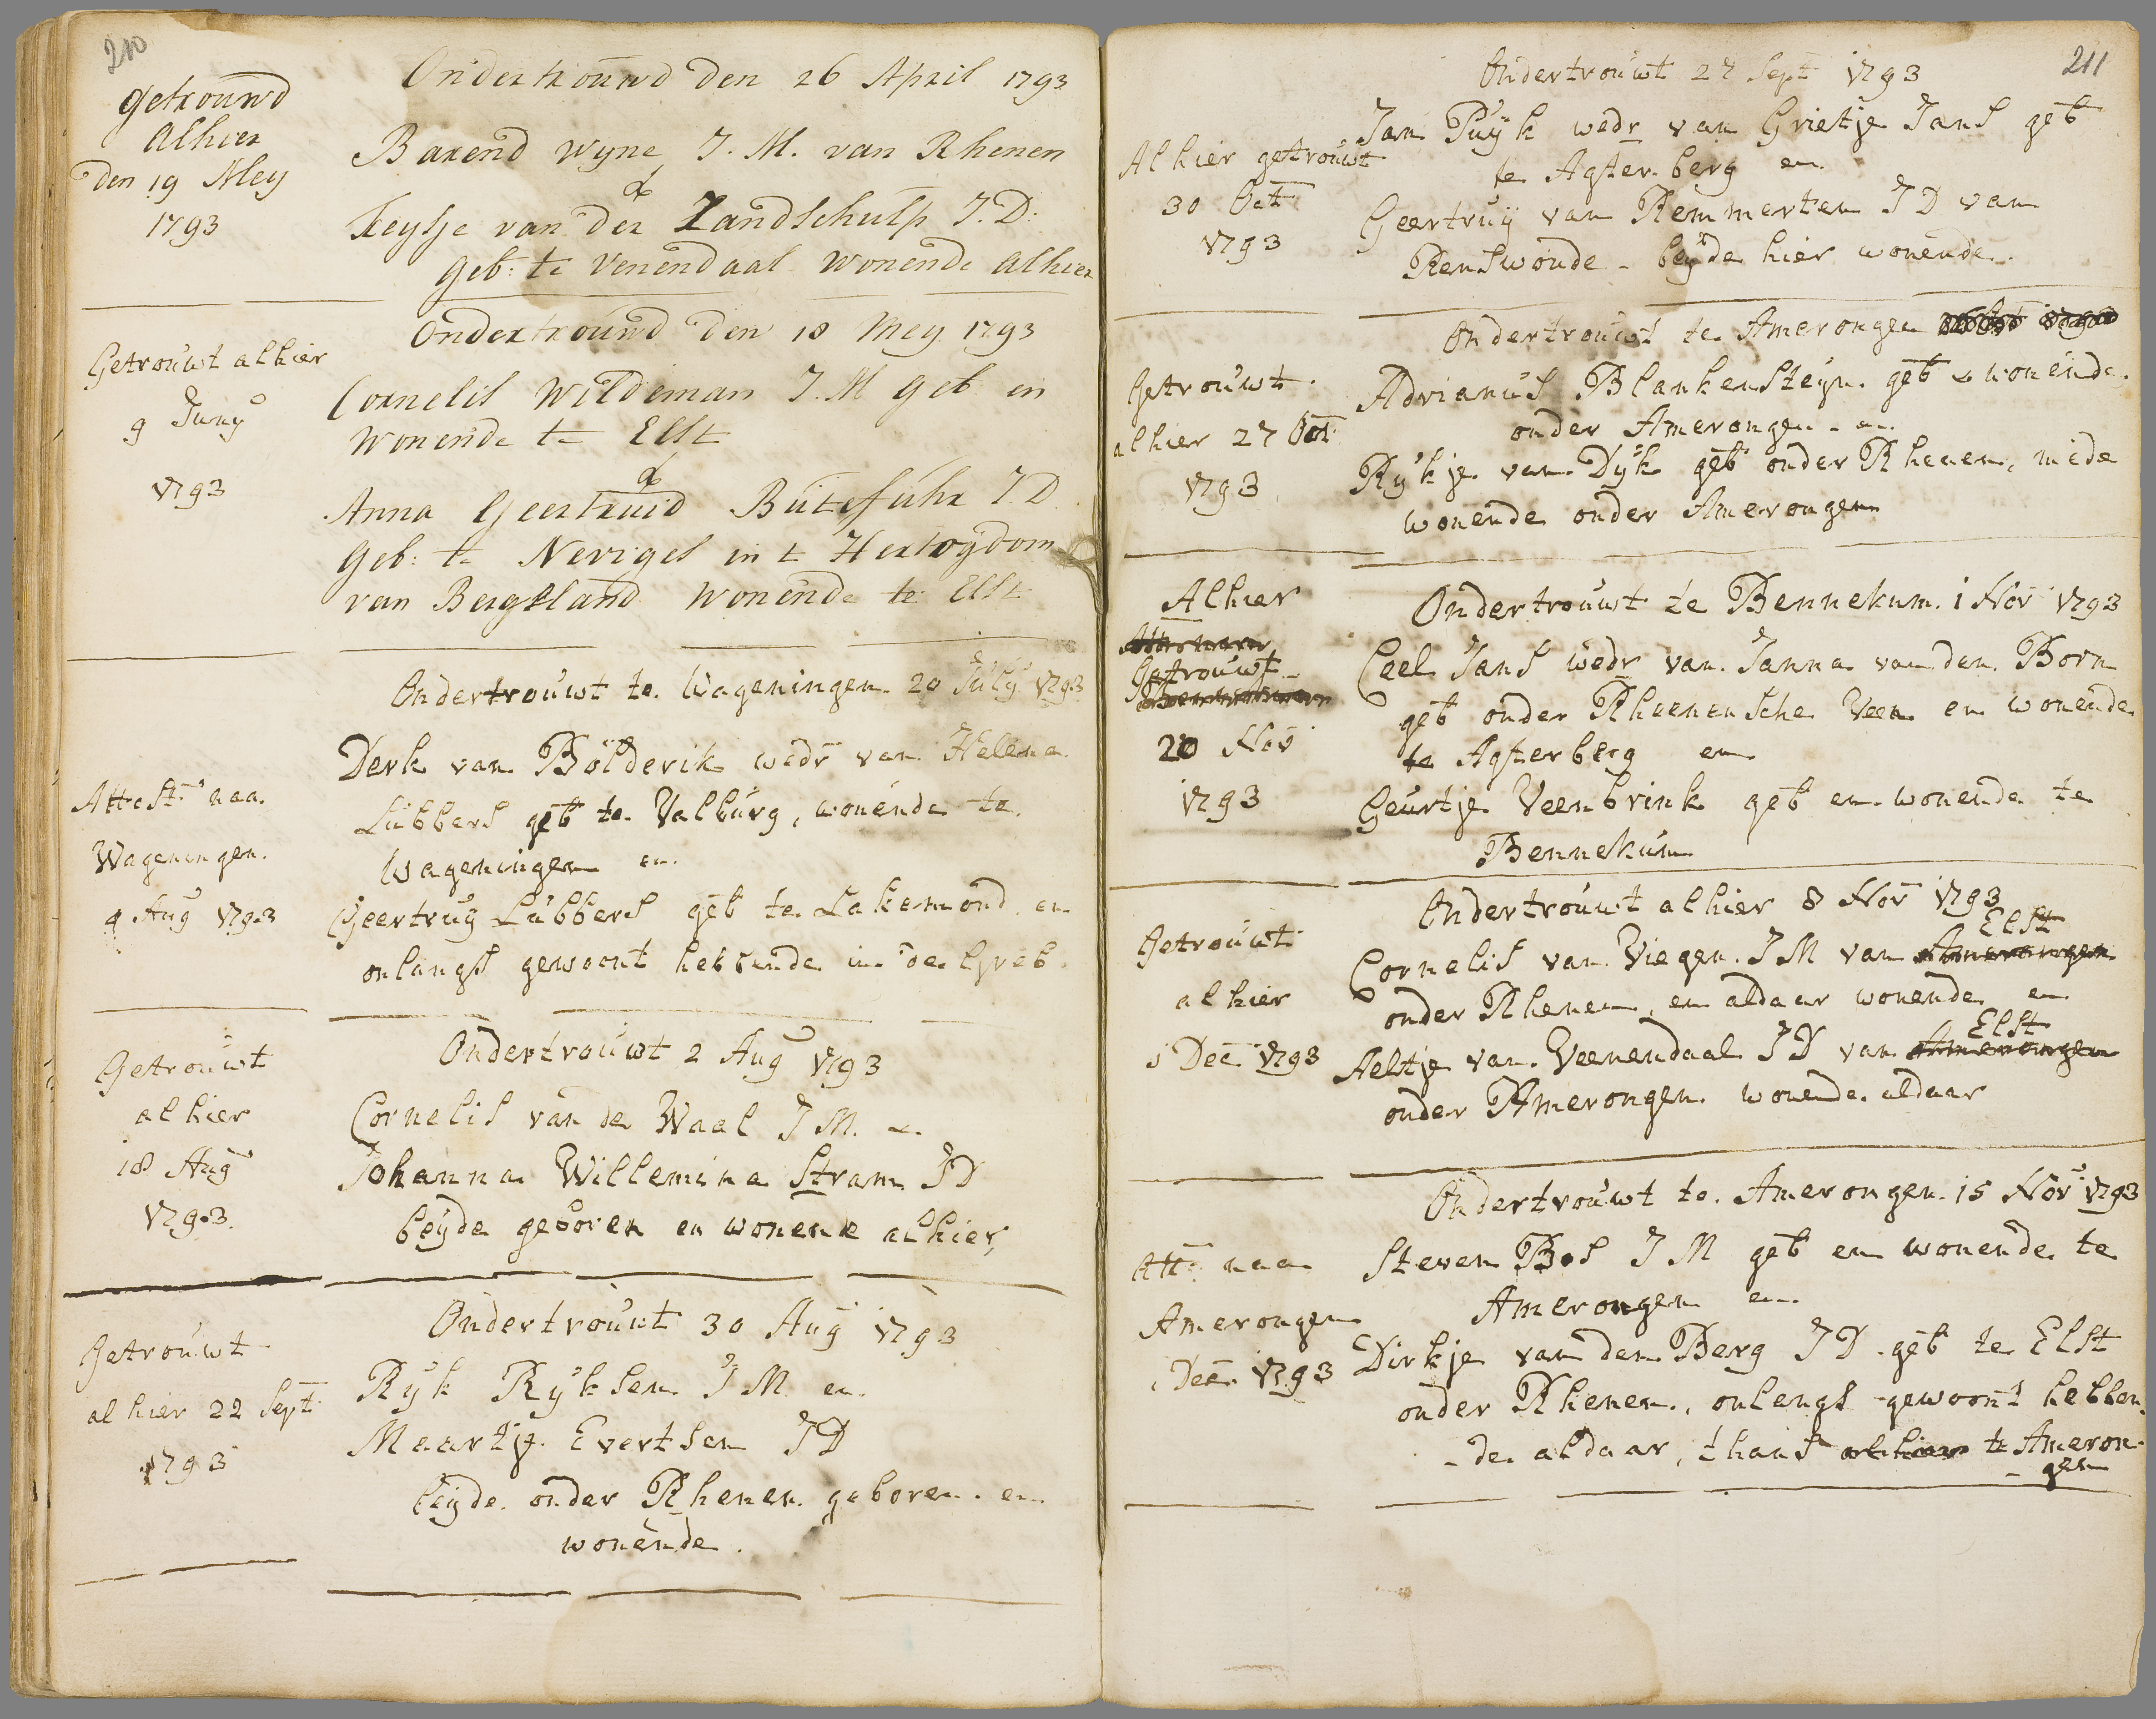 210
getrouwd
alhier
den 19 Mey
1793
Ondertrouwd den 26 April 1793
Barend Wyne J. M. van Rhenen
&
Teysje van der Zandschulp J. D:
geb: te Venendaal wonende alhier
Getrouwt alhier
9 Juny
1793
Ondertrouwd den 18 Mey 1793
Cornelis Wildeman J. M geb en
wonende te Elst
&
Anna Geertruid Butefuhr J. D.
geb: te Neviges in t Hertogdom
van Bergsland wonende te Elst
Attest: naa
Wageningen.
4 Aug 1793
Ondertrouwt te Wageningen 20 July 1793
Derk van Bolderik wedr van Helena
Lubbers geb te Valburg, wonende te
Wageningen en
Geertruy Lubbers geb te Lakemond en
onlangs gewoont hebbende in de Greb.
Getrouwt
alhier
18 Aug
1793.
Ondertrouwt 2 Aug 1793
Cornelis van de Waal J M. &
Johanna Willemina Stram J D
beyde geboren en wonende alhier,
Getrouwt
alhier 22 Sept
1793
Ondertrouwt 30 Aug 1793
Ryk Ryksen J M. en
Maartje Evertsen J D
beyde onder Rhenen geboren en
wonende.
211
Alhier getrouwt
30 Oct
1793
Ondertrouwt 27 Sept 1793
Jan Puyk wedr van Grietje Jans geb
te Agterberg en
Geertruy van Remmerten J D van
Renswoude - beyde hier wonende.
Getrouwt
alhier 27 Oct
1793
Ondertrouwt te Amerongen
Adrianus Blankensteyn geb & wonende
onder Amerongen - en
Rykje van Dyk geb onder Rhenen, mede
wonende onder Amerongen
Alhier
Getrouwt
20 Nov
1793
Ondertrouwt te Bennekum 1 Nov 1793
Ceel Jans wedr van Janna van den Born
geb onder Rheenensche Veen en wonende
te Agterberg en
Geurtje Veenbrink geb en wonende te
Bennekum
Getrouwt
alhier
1 Dec 1793
Ondertrouwt alhier 8 Nov 1793
Elst
Cornelis van Viegen J M van Amerongen
onder Rhenen, en aldaar wonende en
Elst
Aeltje van Veenendaal J D van Amerongen
onder Amerongen wonende aldaar
Att: naa
Amerongen
1 Dec 1793
Ondertrouwt te Amerongen 15 Nov 1793
Steven Bos J M geb en wonende te
Amerongen en
Dirkje van den Berg J D geb te Elst
onder Rhenen, onlangs gewoont hebben
-de aldaar, thans alhier te Ameron-
-gen